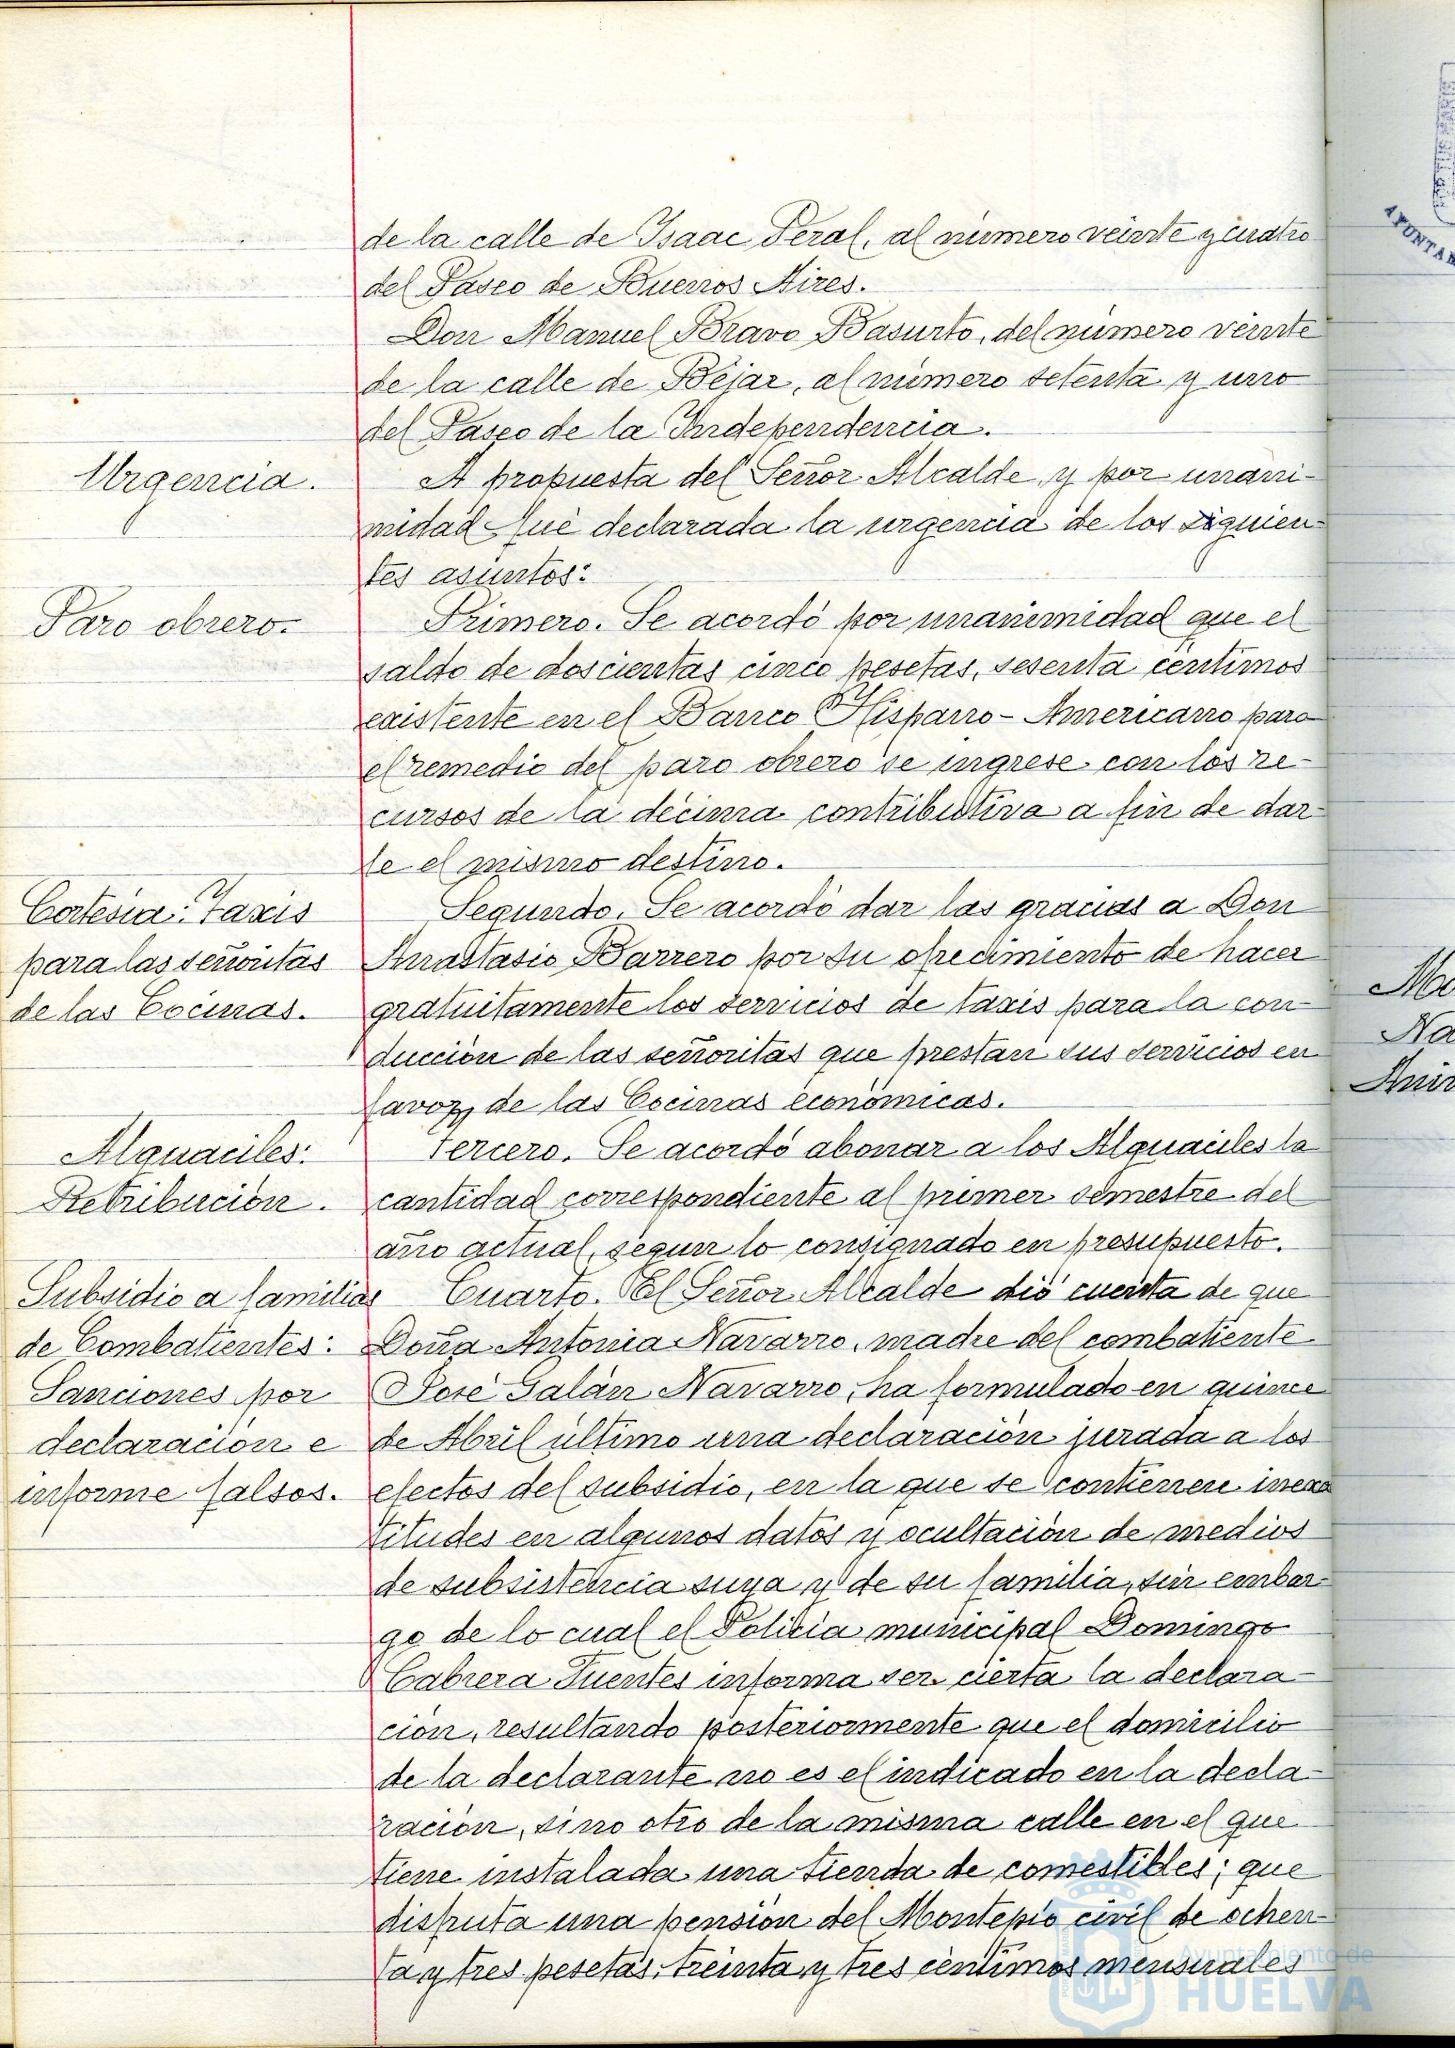 de la calle de Isaac Peral, al número veinte y cuatro
del Paseo de Buenos Aires.
Don Manuel Bravo Basurto, del número veinte
de la calle de Béjar, al número setenta y uno
del Paseo de la Independencia.
Urgencia.
A propuesta del Señor Alcalde y por unani-
midad fué declarada la urgencia de los siguien-
tes asuntos:
Paro obrero.
Primero. Se acordó por unanimidad que el
saldo de doscientas cinco pesetas, sesenta céntimos
existente en el Banco Hispano-Americano para
el remedio del paro obrero se ingrese con los re-
cursos de la décima contributiva a fin de dar-
le el mismo destino.
Cortesía: Taxis
para las señoritas
de las Cocinas.
Segundo. Se acordó dar las gracias a Don
Anastasio Barrero por su ofrecimiento de hacer
gratuitamente los servicios de taxis para la con-
ducción de las señoritas que prestan sus servicios en
favor de las Cocinas económicas.
Alguaciles:
Retribución.
Tercero. Se acordó abonar a los Alguaciles la
cantidad correspondiente al primer semestre del
año actual, según lo consignado en presupuesto.
Subsidio a familias
de Combatientes:
Sanciones por
declaración e
informe falsos.
Cuarto. El Señor Alcalde dió cuenta de que
Doña Antonia Navarro, madre del combatiente
José Galán Navarro, ha formulado en quince
de Abril último una declaración jurada a los
efectos del subsidio, en la que se contienen inexac
titudes en algunos datos y ocultación de medios
de subsistencia suya y de su familia, sin embar-
go de lo cual el Policía municipal Domingo
Cabrera Fuentes informa ser cierta la declara-
ción, resultando posteriormente que el domicilio
de la declarante no es el indicado en la decla-
ración, sino otro de la misma calle en el que
tiene instalada una tienda de comestibles; que
disfruta una pensión del Montepío civil de ochen-
ta y tres pesetas, treinta y tres céntimos mensuales
Ayuntamiento de
HUELVA